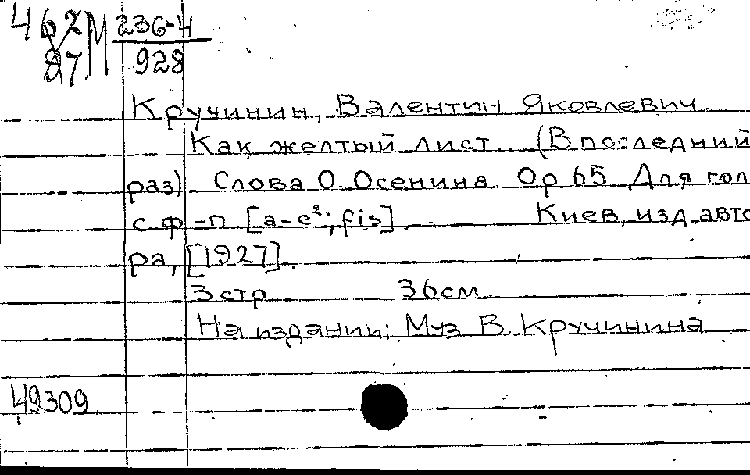 462 М 236-4
87 928
Кручинин, Валентин Яковлевич
Как желтый лист... (В последний
раз). Слова О. Осенина. Op 65. Для гол
с ф-п [a-e²; fis]. Киев, изд. авто
ра, [1927].
3 стр 36 см
На издании: Муз В. Кручинина
49309